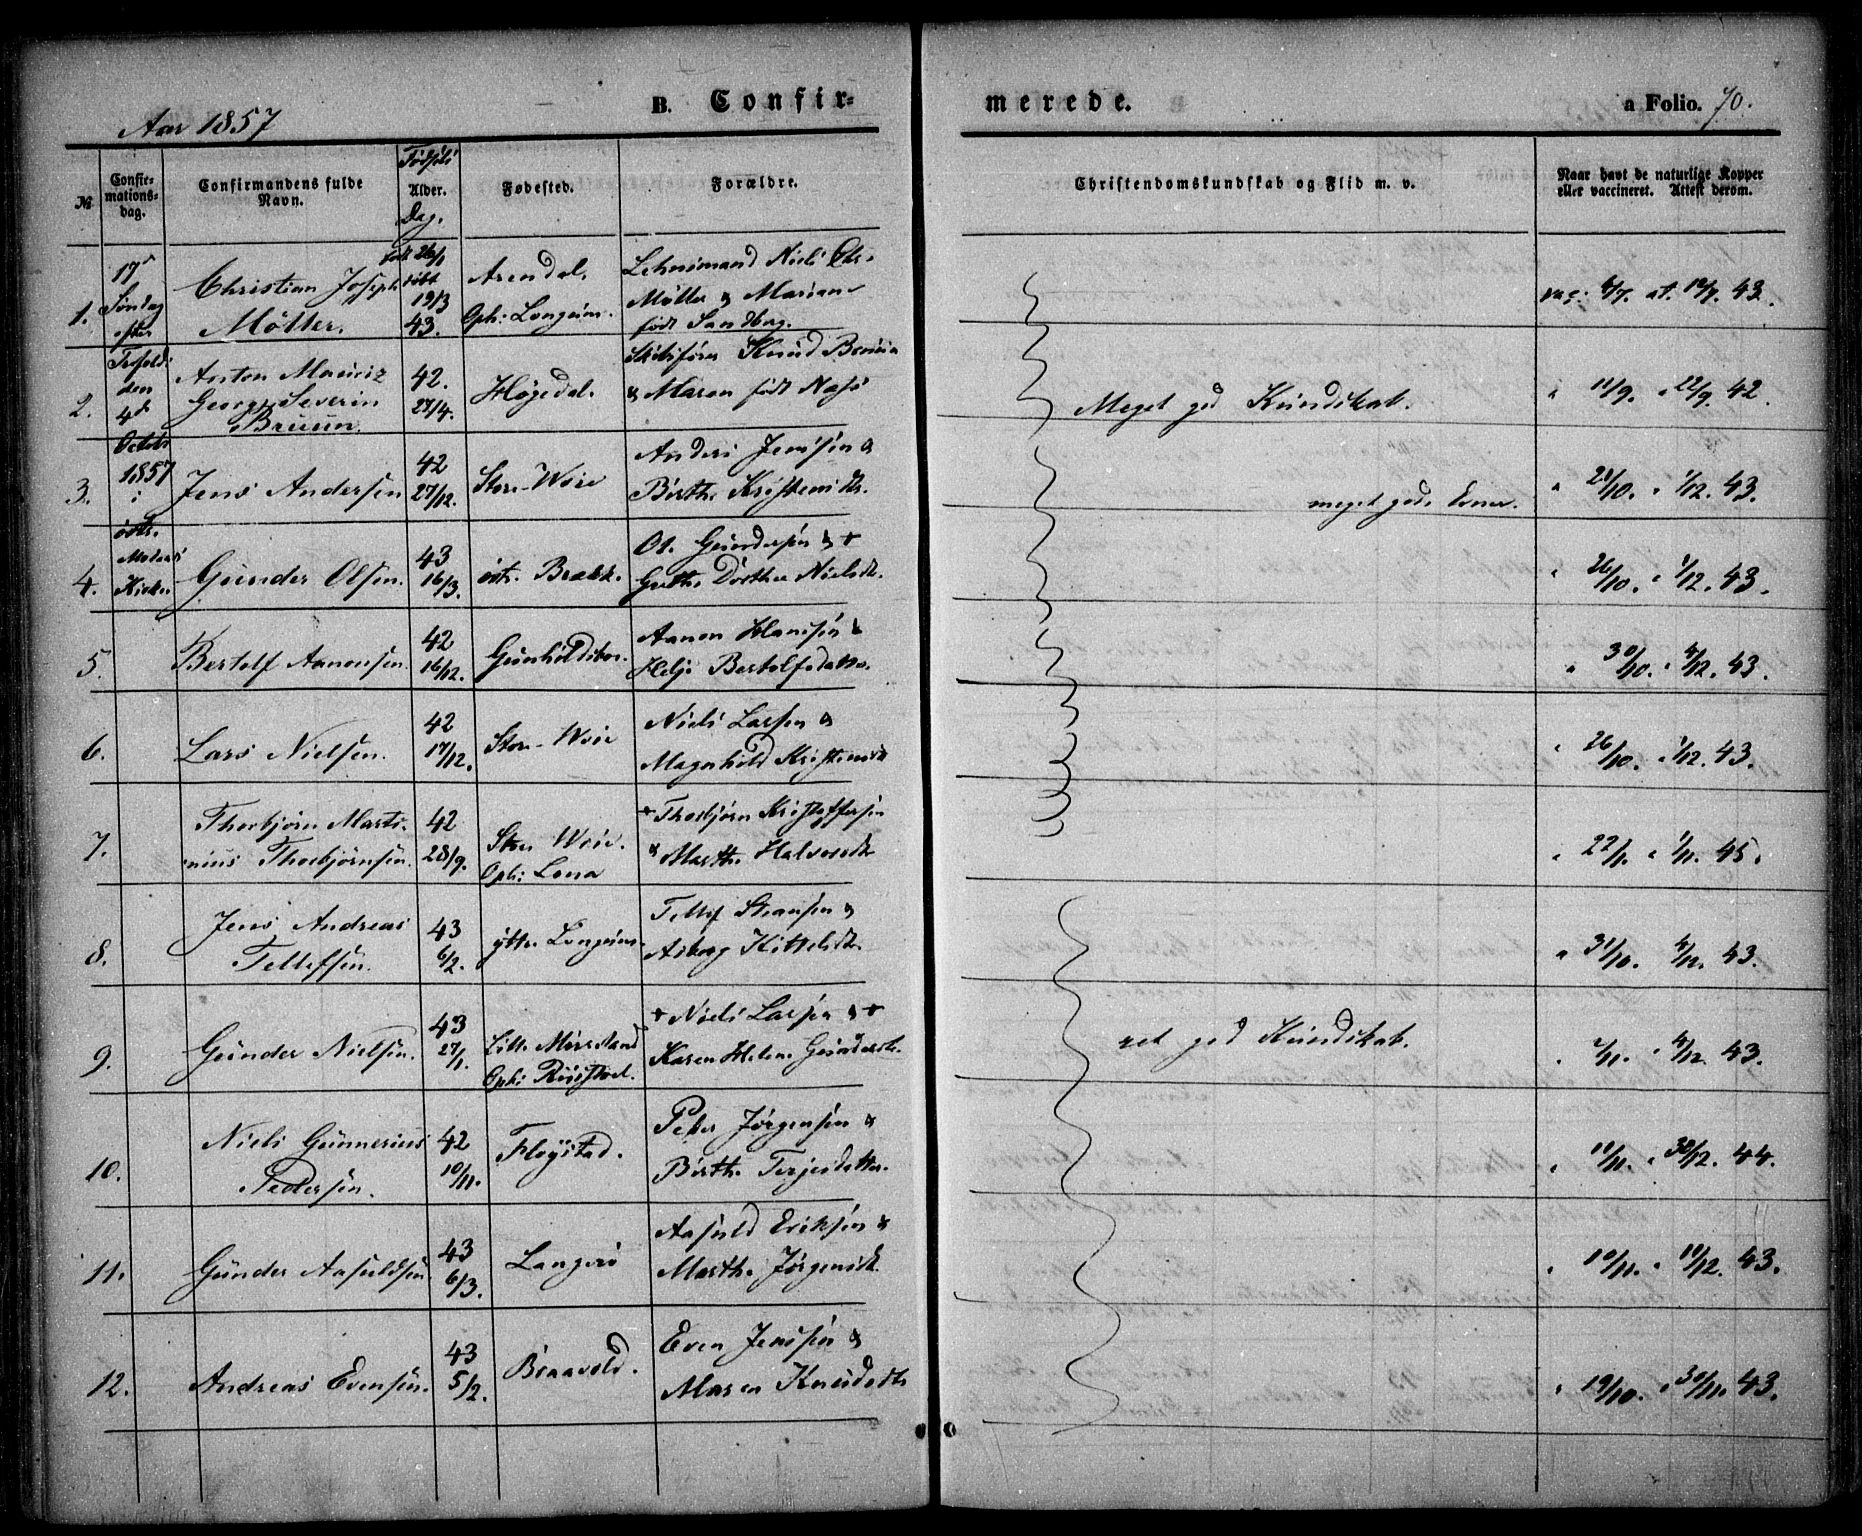 Aar 1857
B. Confir-
merede.
a Folio. 70.
№
Confir-
mations-
dag.
Confirmandens fulde
Navn.
Fødsels
Alder.
Dag.
Fødested.
Forældre.
Christendomskundskab og Flid m. v.
Naar havt de naturlige Kopper
eller vaccineret. Attest derom.
17de
Søndag
efter
Trefold:
den
4de
Octobr
1857
i
østre
Molands
Kirke
1.
Christian Joseph
Möller.
født 26/1
døbt
19/3
43.
Arendal.
Oph: Longum.
Lehnsmand Niels Chr.
Möller & Mariane
født Sandberg.
vac: 4/7. at. 12/7. 43.
2.
Anton Mauriz
Georg Severin
Bruun.
42.
27/4.
Högedal.
Skibsfører Knud Bruun
& Maren født Næss
Meget god Kundskab.
" 11/9. " 22/9. 42.
3.
Jens Andersen
42
27/12.
Store-Weie
Anders Jensen &
Birthe Kristensdtr.
meget gode Evner.
" 28/10. " 1/12. 43.
4.
Gunder Olsen.
43
16/3.
östre Bræke.
Ole Gundersen & +
Grethe Dorthea Nielsdtr.
" 26/10. " 1/12. 43.
5.
Bertolf Aanonsen.
42
16/12.
Gunholdsbo.
Aanon Hansen &
Helje Bertolfsdatter.
" 30/10. " 4/12. 43.
6.
Lars Nielsen.
42
17/12.
Store-Weie
Niels Larsen &
Magnhild Kristensdtr
" 26/10. " 1/12. 43.
7.
Thorbjörn Marti-
nius Thorbjörnsen.
42
28/9.
Store Weie.
Oph: Lona
+ Thorbjörn Kristoffersen
& Marthe Halvorsdtr
" 22/1. " 1/11. 45.
8.
Jens Andreas
Tellefsen.
43
6/2.
yttre Longum.
Tellef Steansen &
Asborg Kittelsdtr.
" 31/10. 4/12. 43.
9.
Gunder Nielsen.
43
27/1.
Lille Mørland
Oph:
+ Niels Larsen & +
Karen Helene Gundersdtr.
ret god Kundskab.
" 2/11. " 4/12. 43.
10.
Niels Gunnerius
Pedersen.
42
10/11.
Fløystad.
Peder Jörgensen &
Birthe Terjesdatter.
" 11/11. " 30/12. 44.
11.
Gunder Aasuldsen
43
6/3.
Langerö
Aasuld Eriksen &
Marthe Jörgensdtr.
" 10/11. " 19/12. 43.
12.
Andreas Evensen.
43
5/2.
Braavold.
Even Jensen &
Maren Knudsdtr
" 19/10. " 30/11. 43.